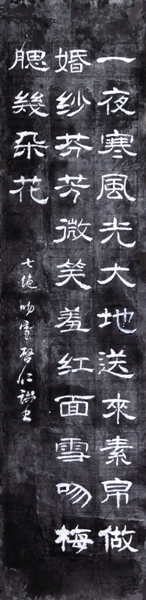 一夜寒風光大地送來素帛做
婚紗芬芳微笑羞红面雪吻梅
腮幾朵花
七绝 吻雪 啓仁撰書